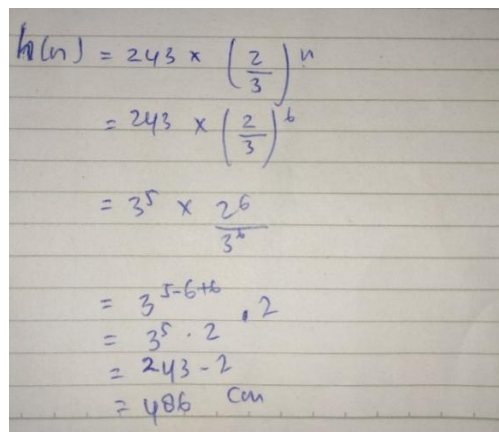 h(n) = 243 × (2/3)^n
= 243 × (2/3)^6
= 3^5 × 2^6/3^6
= 3^{5-6+6} . 2
= 3^5 · 2
= 243 - 2
= 486 cm